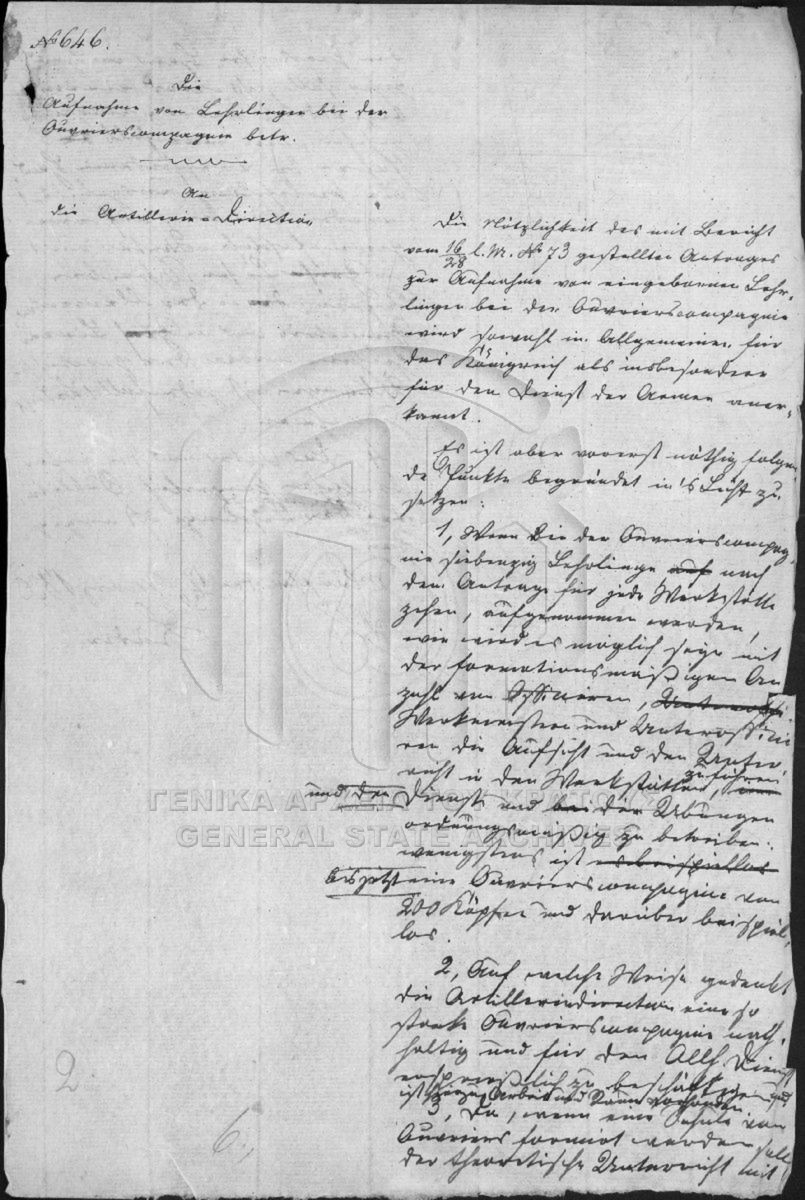 № 646.
Die
Aufnahme von Lehrlingen bei der
Ouvrierscompagnie betr.
An
die Artillerie-Direction
Die Nützlichkeit des mit Bericht
vom 16/28 l. M. № 73 gestellten Antrages
zur Aufnahme von eingebornen Lehr-
lingen bei der Ouvrierscompagnie
wird sowohl im Allgemeinen für
das Königreich als insbesondere
für den Dienst der Armee aner-
kannt.
Es ist aber vorerst nöthig folgen-
de Punkte begründet in's Licht zu
setzen:
1, Wenn bei der Ouvrierscompag-
nie siebenzig Lehrlinge auf nach
dem Antrage für jede Werkstätte
zehen, aufgenommen werden,
wie wird es möglich seyn mit
der formationsmäßigen An
zahl von Offizieren,
Werkmeistern und Unteroffizie
ren die Aufsicht und den Unter-
richt in den Werkstätten, zu führen
und den Dienst und bei die Übungen
ordnungsmäßig zu betreiben.
wenigstens ist es beispiellos
bis jetzt eine Ouvrierscompagnie von
200 Köpfen und darüber beispiel-
los.
2, Auf welche Weise gedenkt
die Artilleriedirection eine so
starke Ouvrierscompagnie nach-
haltig und für den Dienst
ersprießlich zu beschäftigen und
ist hiezu Arbeit und Raum vorhanden
3, Da, wenn eine Schule von
Ouvriers formirt werden soll
der theoretische Unterricht mit
2
6.
ΓΕΝΙΚΑ ΑΡΧΕΙΑ ΤΟΥ ΚΡΑΤΟΥΣ
GENERAL STATE ARCHIVES